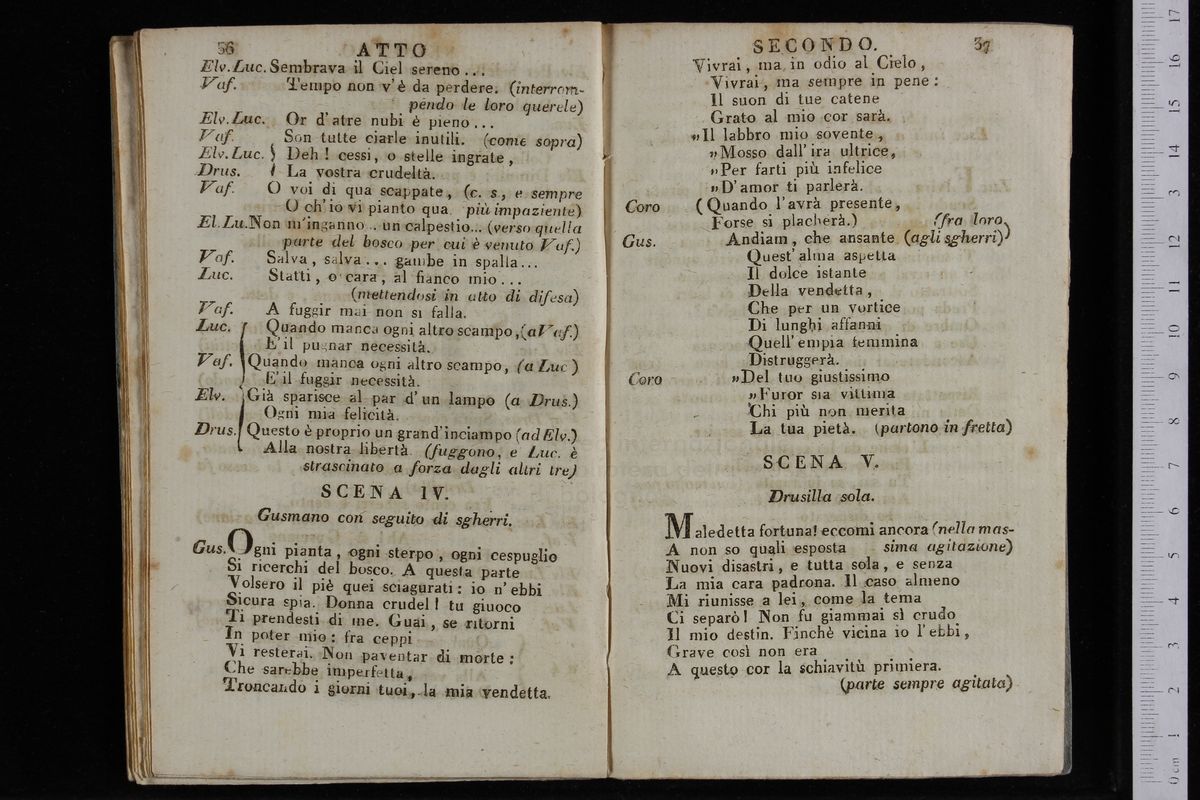 36 ATTO
Elv. Luc. Sembrava il Ciel sereno ...
Vaf. Tempo non v'è da perdere. (interrom-
pendo le loro querele)
Elv. Luc. Or d'atre nubi è pieno ...
Vaf. Son tutte ciarle inutili. (come sopra)
Elv. Luc. } Deh! cessi, o stelle ingrate,
Drus. { La vostra crudeltà.
Vaf. O voi di qua scappate, (c. s., e sempre
O ch'io vi pianto qua. più impaziente)
El. Lu. Non m'inganno .. un calpestio... (verso quella
parte del bosco per cui è venuto Vaf.)
Vaf. Salva, salva... gambe in spalla...
Luc. Statti, o cara, al fianco mio ...
(mettendosi in atto di difesa)
Vaf. A fuggir mai non si falla.
Luc. Quando manca ogni altro scampo, (a Vaf.)
E' il pugnar necessità.
Vaf. Quando manca ogni altro scampo, (a Luc )
E' il fuggir necessità.
Elv. Già sparisce al par d'un lampo (a Drus.)
Ogni mia felicità.
Drus. Questo è proprio un grand'inciampo (ad Elv.)
Alla nostra libertà (fuggono, e Luc. è
strascinato a forza dagli altri tre)
SCENA IV.
Gusmano con seguito di sgherri.
Gus. Ogni pianta, ogni sterpo, ogni cespuglio
Si ricerchi del bosco. A questa parte
Volsero il piè quei sciagurati: io n'ebbi
Sicura spia. Donna crudel! tu giuoco
Ti prendesti di me. Guai, se ritorni
In poter mio: fra ceppi
Vi resterai. Non paventar di morte:
Che sarebbe imperfetta,
Troncando i giorni tuoi, la mia vendetta.
SECONDO. 37
Vivrai, ma in odio al Cielo,
Vivrai, ma sempre in pene:
Il suon di tue catene
Grato al mio cor sarà.
»Il labbro mio sovente,
»Mosso dall'ira ultrice,
»Per farti più infelice
»D'amor ti parlerà.
Coro (Quando l'avrà presente,
Forse si placherà.) (fra loro)
Gus. Andiam, che ansante (agli sgherri)
Quest'alma aspetta
Il dolce istante
Della vendetta,
Che per un vortice
Di lunghi affanni
Quell'empia femmina
Distruggerà.
Coro »Del tuo giustissimo
»Furor sia vittima
Chi più non merita
La tua pietà. (partono in fretta)
SCENA V.
Drusilla sola.
Maledetta fortuna! eccomi ancora (nella mas-
A non so quali esposta sima agitazione)
Nuovi disastri, e tutta sola, e senza
La mia cara padrona. Il caso almeno
Mi riunisse a lei, come la tema
Ci separò! Non fu giammai sì crudo
Il mio destin. Finchè vicina io l'ebbi,
Grave così non era
A questo cor la schiavitù primiera.
(parte sempre agitata)
0 cm 1 2 3 4 5 6 7 8 9 10 11 12 13 14 15 16 17